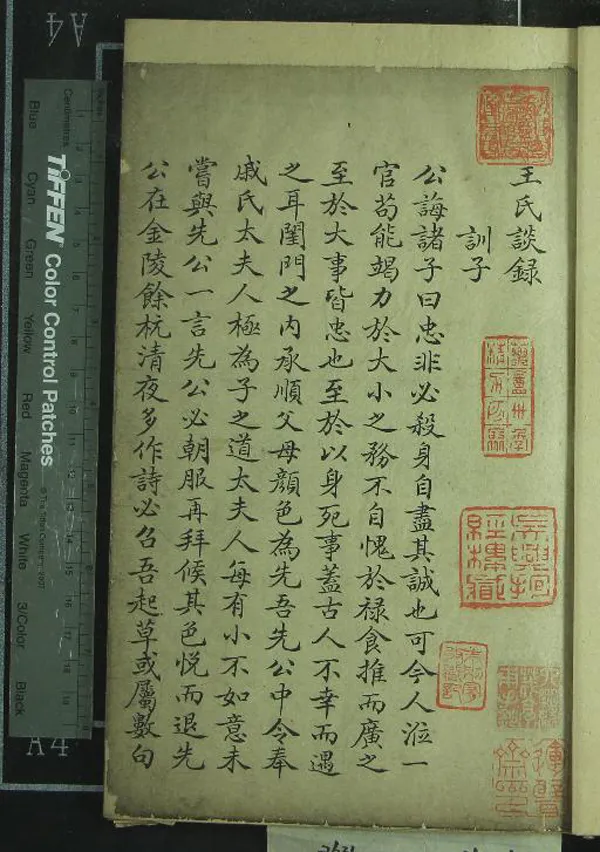 王氏談録
訓子
公誨諸子曰忠非必殺身自盡其誠也可今人涖一
官苟能竭力於大小之務不自愧於禄食推而廣之
至於大事皆忠也至於以身死事蓋古人不幸而遇
之耳閨門之内承順父母顔色為先吾先公中令奉
戚氏太夫人極為子之道太夫人每有小不如意未
嘗與先公一言先公必朝服再拜候其色悦而退先
公在金陵餘杭清夜多作詩必召吾起草或屬數句
A4
A4
Centimetres
TIFFEN Color Control Patches
© The Tiffen Company, 2007
Blue
Cyan
Green
Yellow
Red
Magenta
White
3/Color
Black